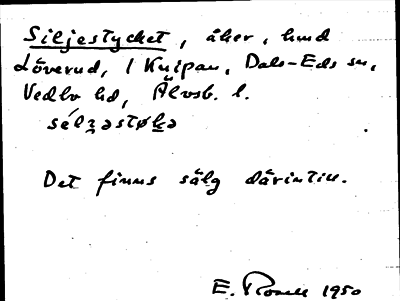 Siljestycket, åker, hmd
Löverud, 1 Knipan, Dals-Eds sn,
Vedbo hd, Älvsb. l.
sélʒəstøkə
Det finns sälg därintill.
E. 1950